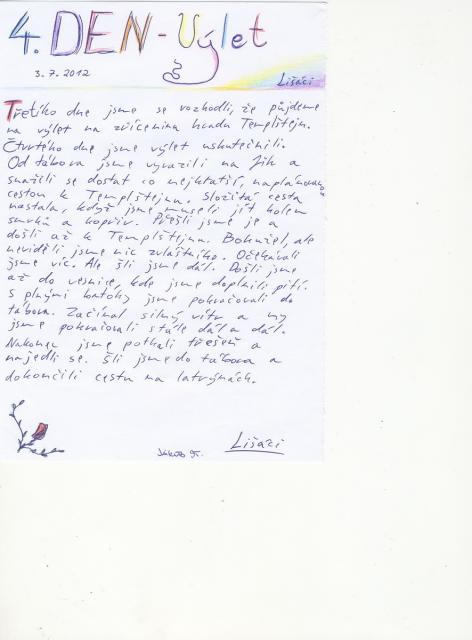 4. DEN - Výlet
3.7.2012
Lišáci
Třetího dne jsme se rozhodli, že půjdeme
na výlet na zříceninu hradu Templštejn.
Čtvrtého dne jsme výlet uskutečnili.
Od tábora jsme vyrazili na jih a
snažili se dostat co nejkratší, naplánovanou
cestou k Templštejnu. Složitá cesta
nastala, když jsme museli jít kolem
smrků a kopřiv. Přešli jsme je a
došli až k Templštejnu. Bohužel, ale
neviděli jsme nic zvláštního. Očekávali
jsme víc. Ale šli jsme dál. Došli jsme
až do vesnice, kde jsme doplnili pití.
S plnými batohy jsme pokračovali do
tábora. Začínal silný vítr a my
jsme pokračovali stále dál a dál.
Nakonec jsme potkali třešeň a
najedli se. Šli jsme do tábora a
dokončili cestu na latrýnách.
Lišáci